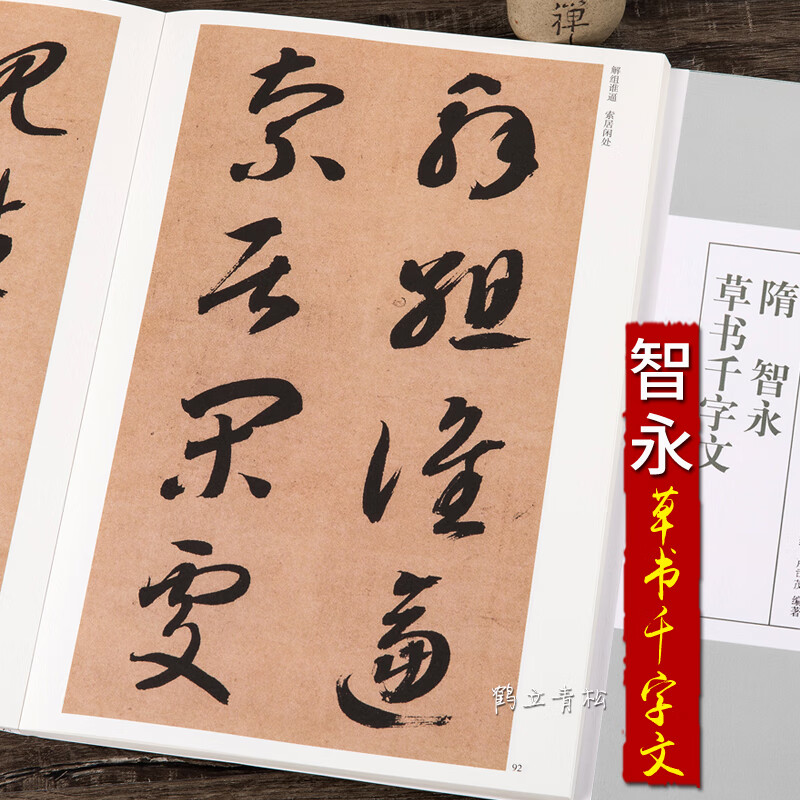 禅
解组谁逼 索居闲处
解组谁逼
索居闲处
92
隋 智永
草书千字文
编著
智永
草书千字文
鹤立青松